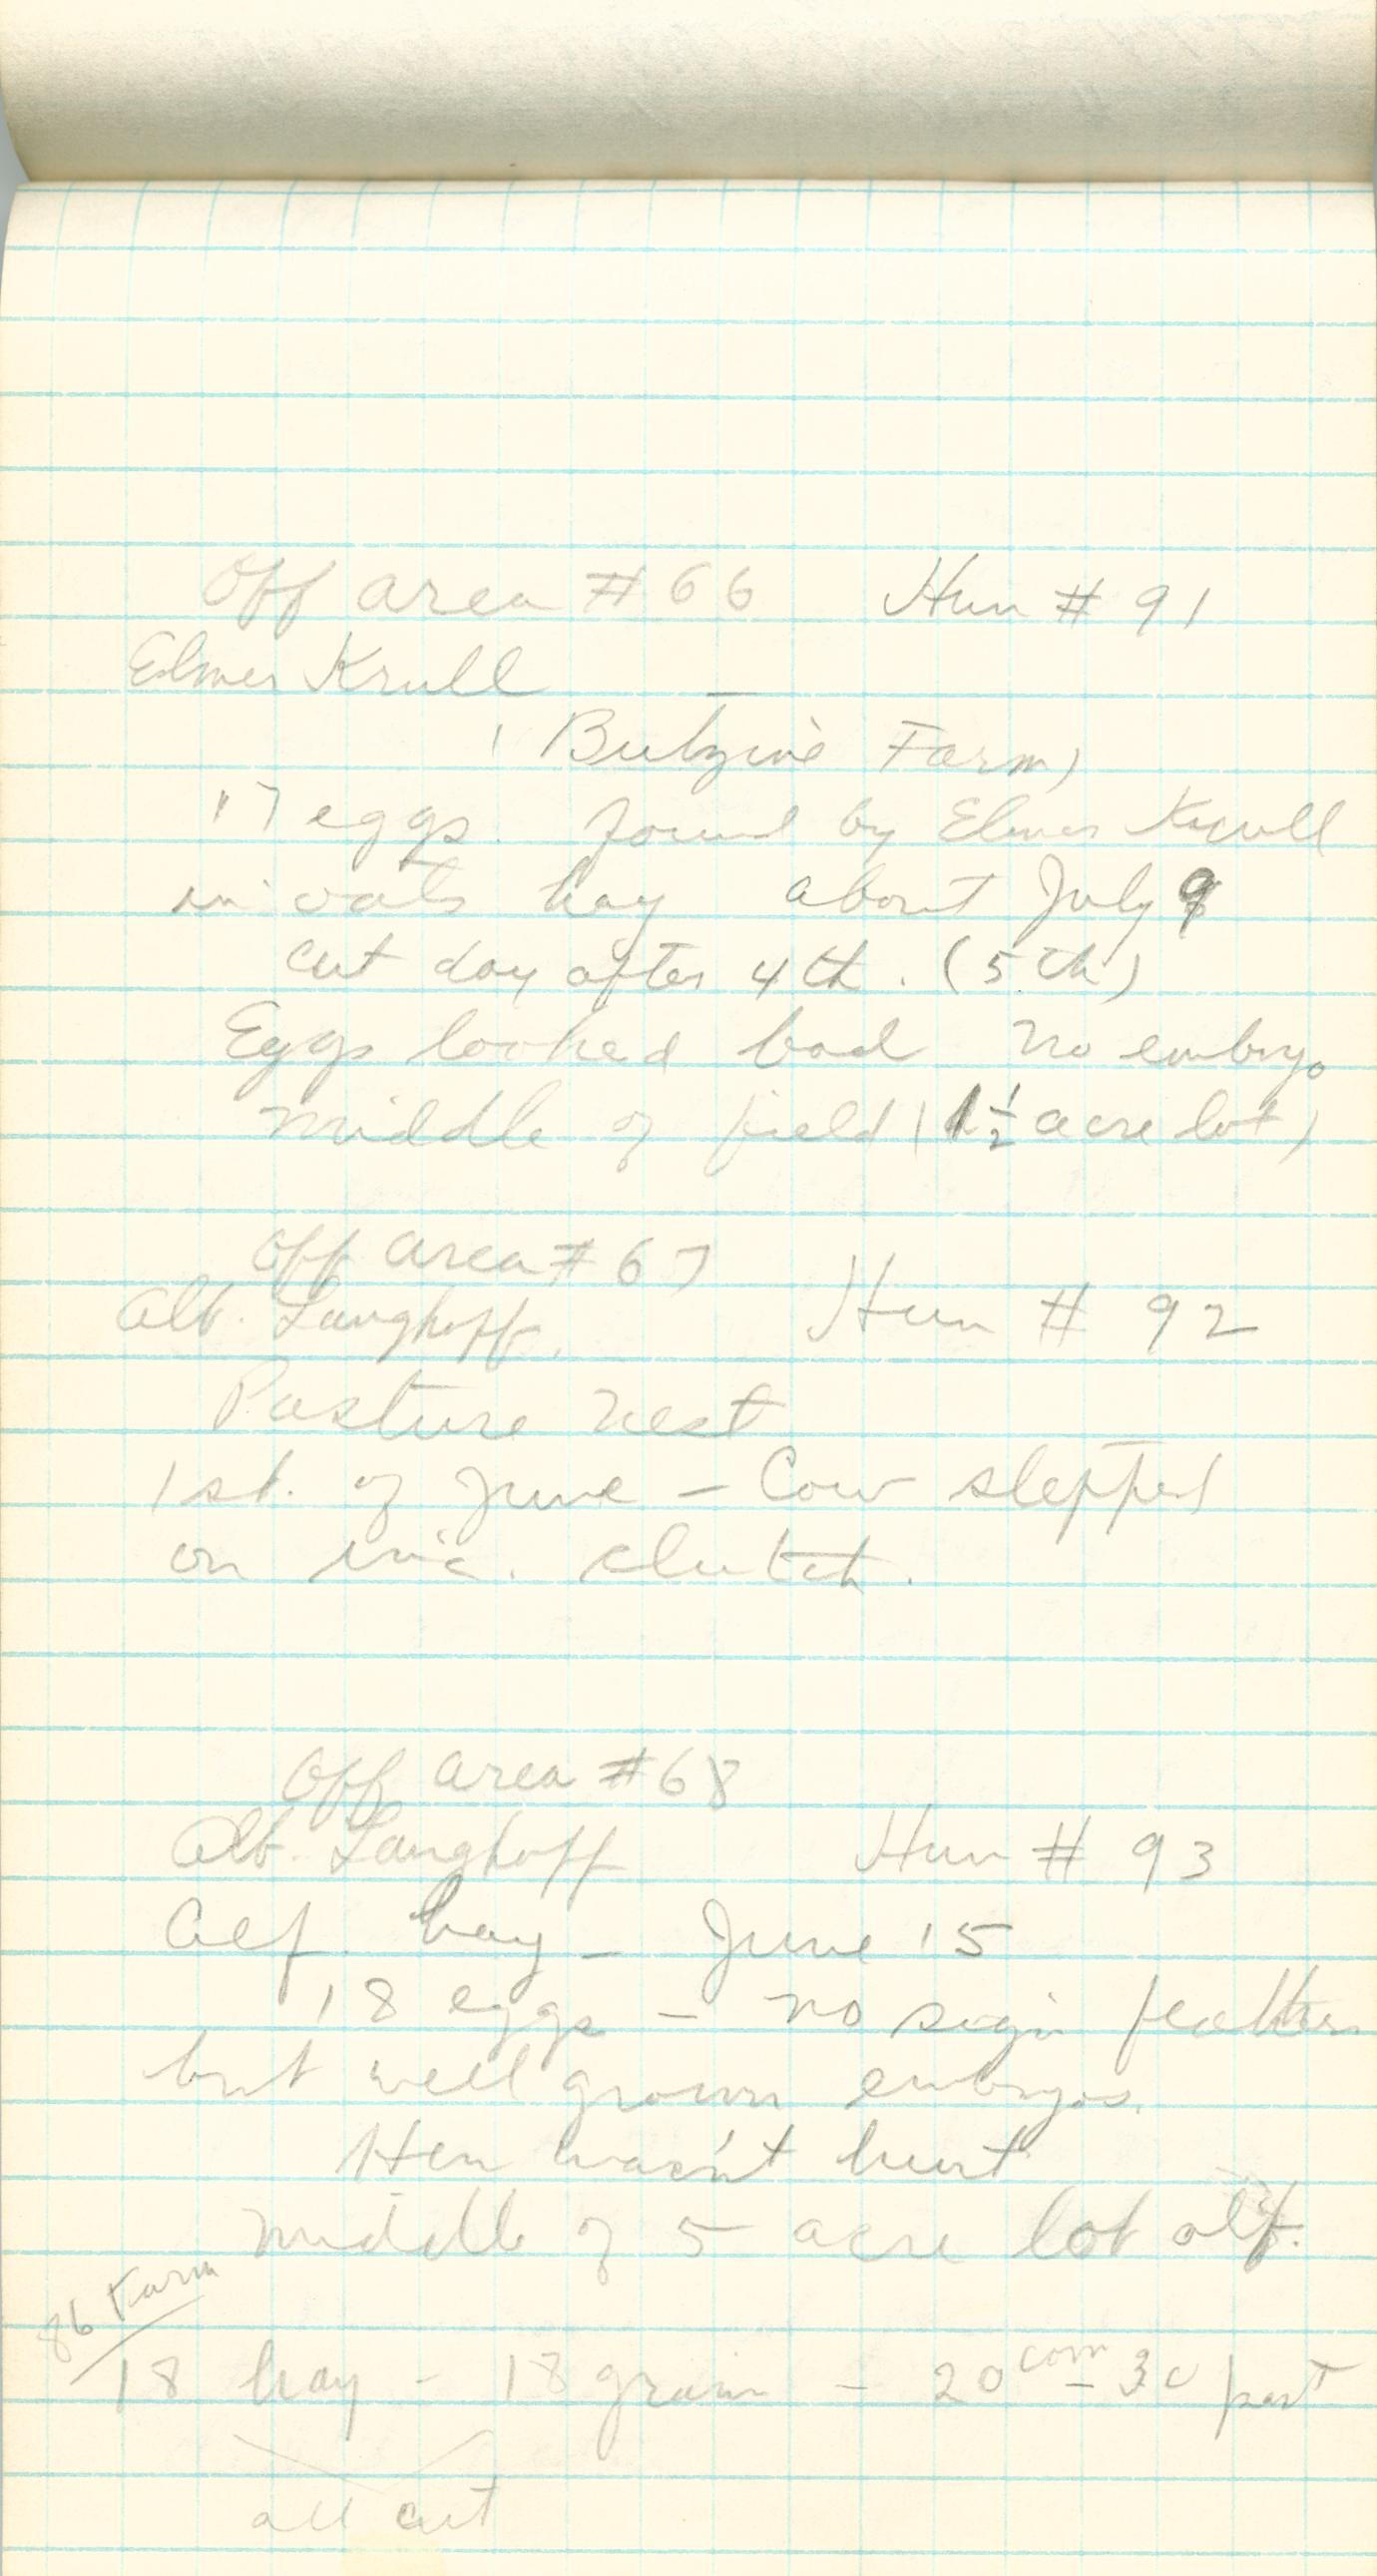 Off area #66 Hun # 91
Elmer Krull —
(Butzine Farm)
17 eggs. found by Elmer Krull
in oats hay about July 9
cut day after 4th. (5th)
Eggs looked bad No embryo
middle of field (1 1/2 acre lot)
Off area #67
Alb. Langhoff. Hun # 92
Pasture nest
1st. of June - Cow stepped
on inc. clutch.
Off area #68
Alb. Langhoff Hun # 93
Alf. hay - June 15
18 eggs - no sign feathers
but well grown embryos.
Hen wasn't hurt
middle of 5 acre lot alf.
86 Farm
18 hay - 18 grain - 20 corn - 30 past
all cut